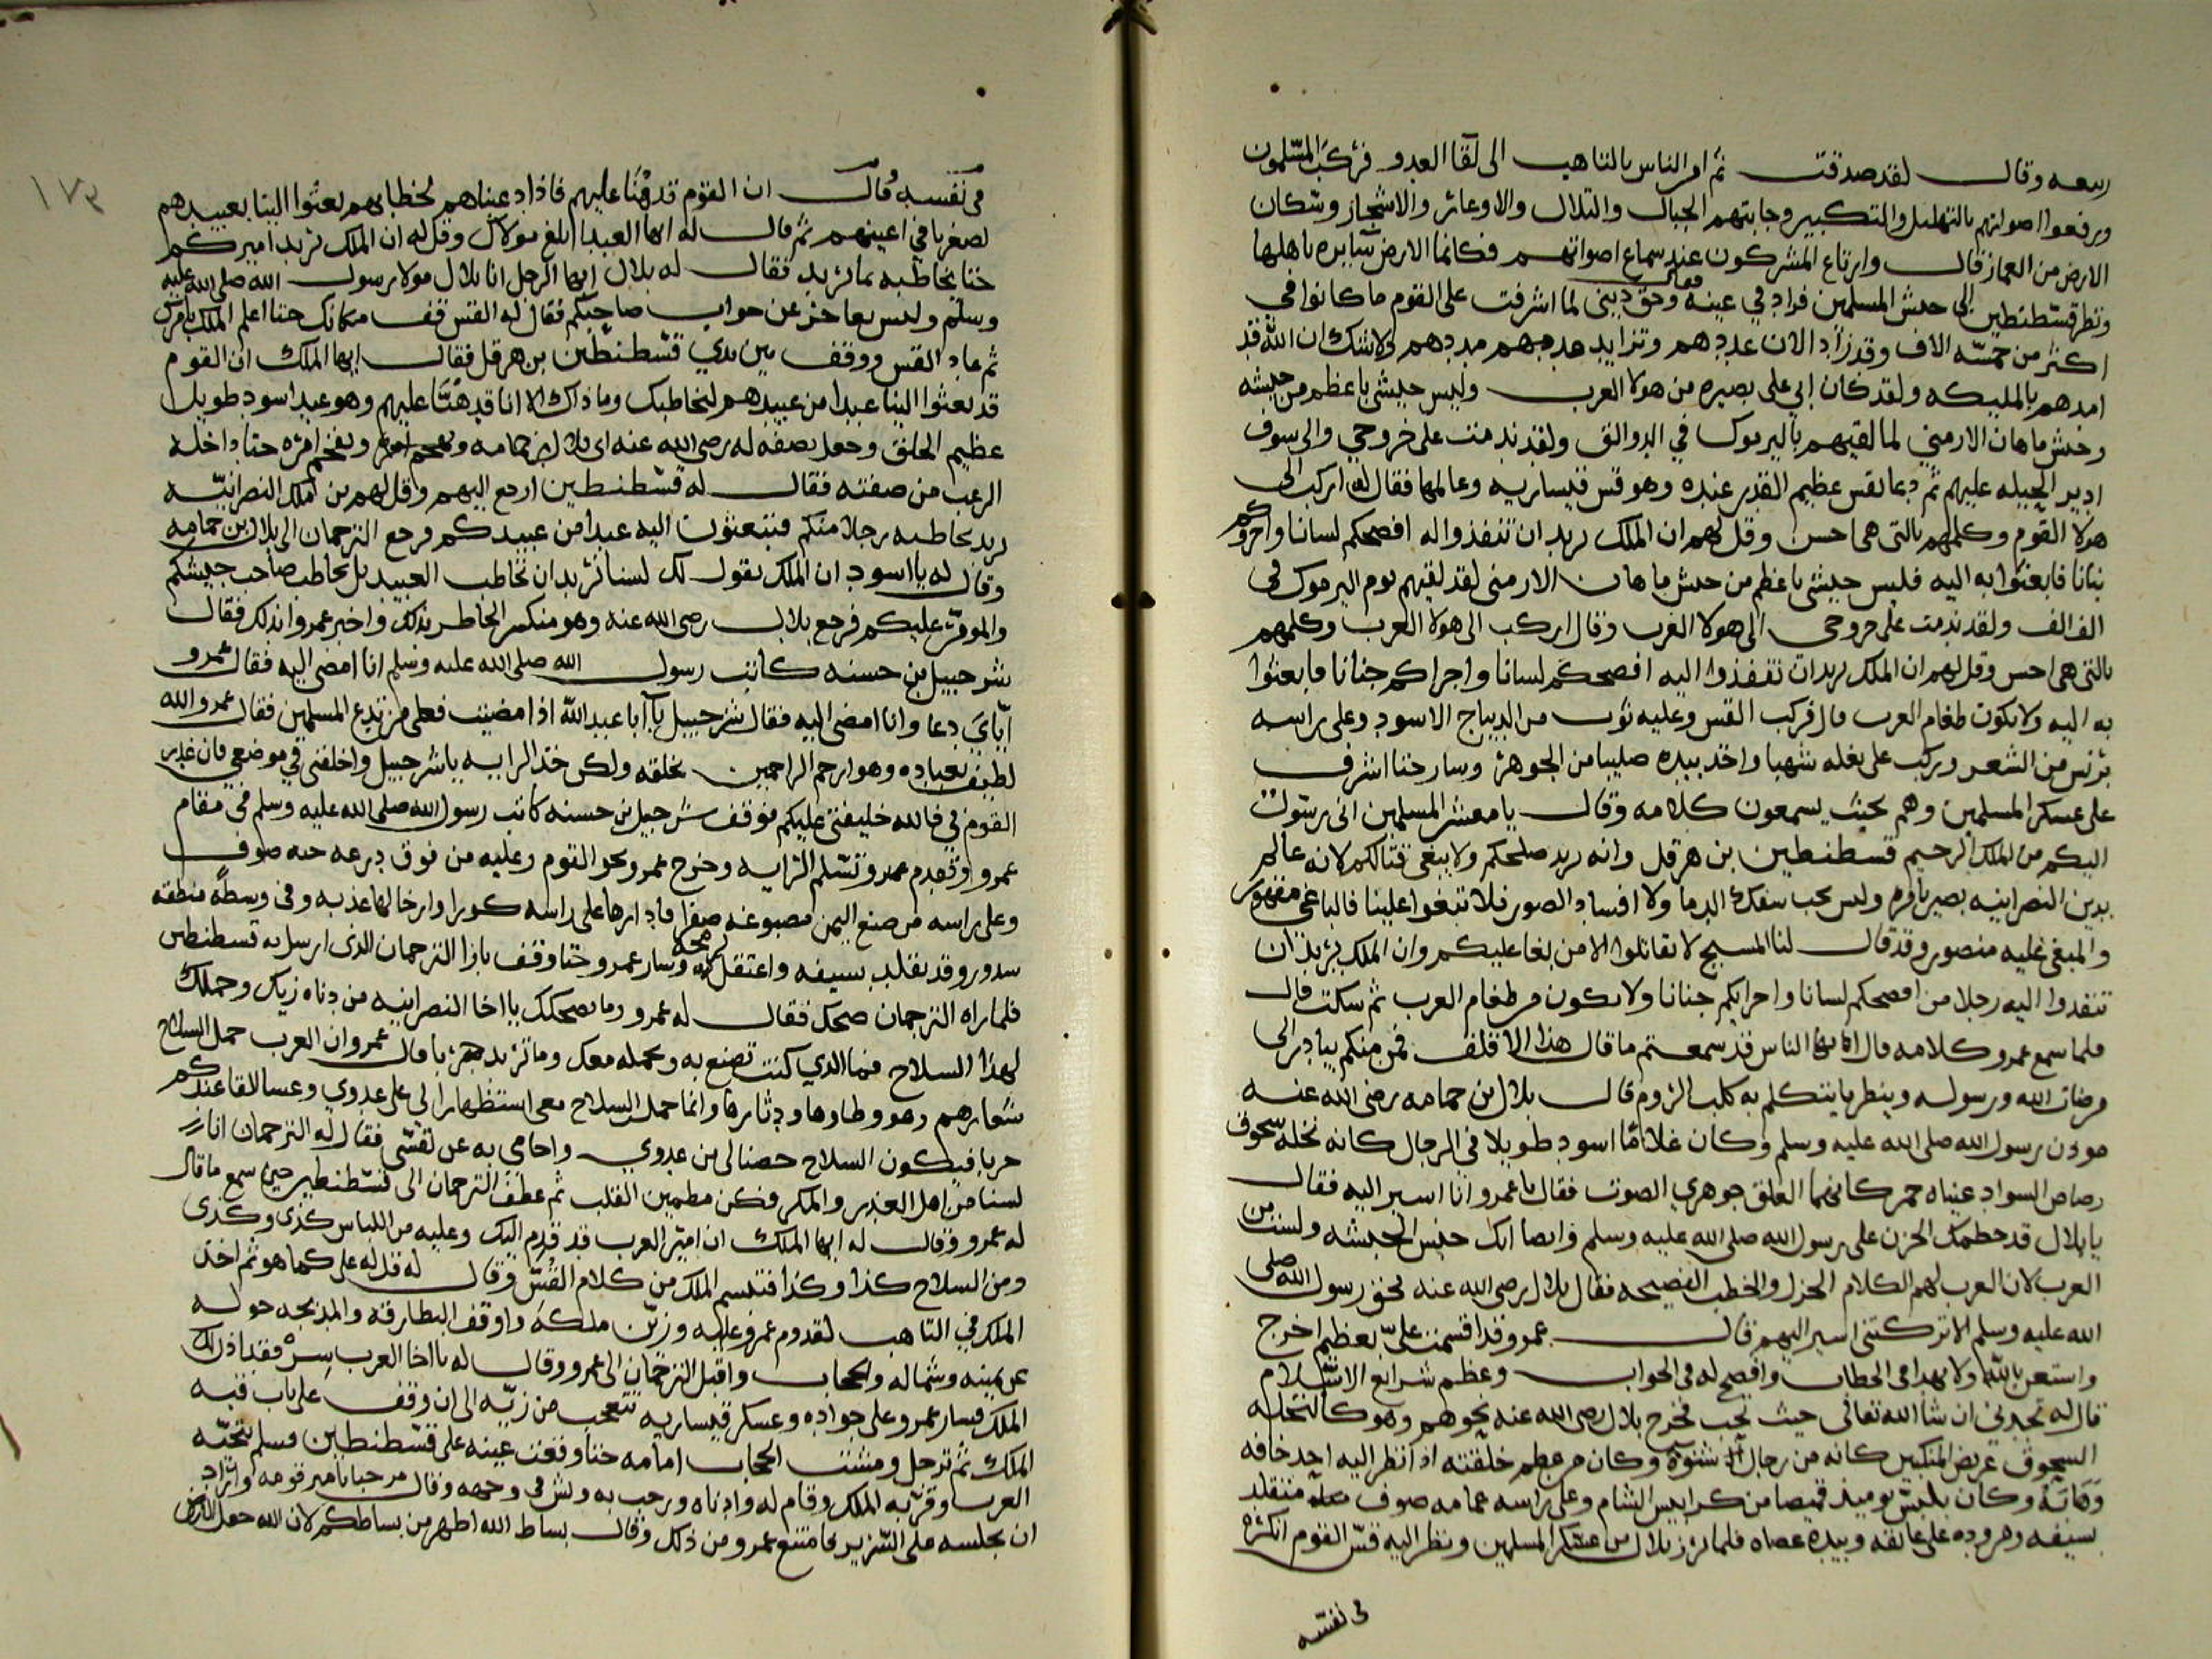 ربيعه وقال لقد صدقت ثم امر الناس بالتاهب الى لقا العدو فركب المسلمون
ورفعوا اصواتهم بالتهليل والتكبير وجابتهم الجبال والتلال والاوعار والاشجار وسكان
الارض من العمار قال وارتاع المشركون عند سماع اصواتهم فكانما الارض سايره باهلها
ونظر قسطنطين الى جيش المسلمين فزاد في عينه فقال وحق ديني لما اشرفت على القوم ما كانوا في
اكثر من خمسه الاف وقد زاد الان عددهم وتزايد مددهم ولا شك ان الله قد
امدهم بالمليكه ولقد كان ابي على بصيره من هولا العرب وليس جيشي باعظم من جيشه
وجيش ماهان الارمني لما لقيهم باليرموك في ولقد ندمت على خروجي والى سوف
ادبر الحيله عليهم ثم دعا بقس عظيم القدر عنده وهو قس قيساريه وعالمها فقال له اركب الى
هولا القوم وكلمهم بالتى هى احسن وقل لهم ان الملك يريد ان تنفذوا له افصحكم لسانا واجروكم
جنانا فابعثوا به اليه فليس جيشي باعظم من جيش ماهان الارمنى لقد لقيهم يوم اليرموك في
الف الف ولقد ندمت على خروجى الى هولا العرب وقال اركب الى هولا العرب وكلمهم
بالتي هي احسن وقل لهم ان الملك يريد ان تنفذوا اليه افصحكم لسانا واجراكم جنانا فابعثوا
به اليه ولا يكون طغام العرب قال فركب القس وعليه ثوب من الديباج الاسود وعلى راسه
برنس من الشعر وركب على بغله شهبا واخذ بيده صليبا من الجوهر وسار حتا اشرف
على عسكر المسلمين وهم بحيث يسمعون كلامه وقال يا معشر المسلمين انى رسول
اليكم من الملك الرحيم قسطنطين بن هرقل وانه يريد صلحكم ولا يبغى قتالكم لانه عالم
بدين النصرانيه بصير بامره وليس يحب سفك الدما ولا افساد الصور فلا تبغوا علينا فالباغى مقهور
والمبغى عليه منصور وقد قال لنا المسيح لا تقاتلوا الا من بغا عليكم وان الملك يريد ان
تنفدوا اليه رجلا من افصحكم لسانا واجرايكم جنانا ولا يكون من طغام العرب ثم سكت قال
فلما سمع عمرو كلامه قال ايها الناس قد سمعتم ما قال هذا الاقلف فمن منكم يبادر الى
مرضات الله ورسوله وينظر ما يتكلم به كلب الروم قال بلال بن حمامه رضى الله عنه
موذن رسول الله صلى الله عليه وسلم وكان غلاما اسود طويلا في الرجال كانه نخله سحوق
السواد عيناه حمر كانهما العلق جوهري الصوت فقال يا عمرو انا اسير اليه فقال
يا بلال قد حطمك الحزن على رسول الله صلى الله عليه وسلم وايضا انك جنس الحبشه ولست من
العرب لان العرب لهم الكلام الجزل والخطب الفصيحه فقال بلال رضى الله عنه بحق رسول الله صلى
الله عليه وسلم الا تركتنى اسير اليهم قال عمرو قد اقسمت على بعظيم اخرج
واستعن بالله ولا في الخطاب وافصح له في الجواب وعظم شرايع الاسلام
قال له تجدنى ان شا الله تعالى حيث تحب فخرج بلال رضى الله عنه نحوهم وهو كالنخله
السحوق عريض المنكبين كانه من رجال شنوة وكان من عظم خلقته اذا نظر اليه احد خافه
وهابه وكان يلبس يوميذ قميصا من كرابيس الشام وعلى راسه عمامه صوف متقلد
بسيفه ومزوده على عاتقه وبيده عصاه فلما برز بلال من عسكر المسلمين ونظر اليه قس القوم انكره
في نفسه
١٧٣
في نفسه وقال ان القوم قد هنا عليهم فاذا دعيناهم لخطابهم بعثوا الينا بعبيدهم
لصغرنا في اعينهم ثم قال له ايها العبد ابلغ مولاك وقل له ان الملك يريد اميركم
حتا يخاطبه بما يريد فقال له بلال ايها الرجل انا بلال مولا رسول الله صلى الله عليه
وسلم وليس بعاجز عن جواب صاحبكم فقال له القس قف مكانك حتا اعلم الملك بامرك
ثم عاد القس ووقف بين يدي قسطنطين بن هرقل فقال ايها الملك ان القوم
قد بعثوا الينا عبدا من عبيدهم ليخاطبك وما ذاك الا انا قد هنا عليهم وهو عبد اسود طويل
عظيم الخلق وجعل يصفه له رضى الله عنه اى بلال بن حمامه ويفخم امره حتا داخله
الرعب من صفته فقال له قسطنطين ارجع اليهم وقل لهم ملك النصرانيه
يريد يخاطبه رجلا منكم فتبعثون اليه عبدا من عبيدكم فرجع الترجمان الى بلال بن حمامه
وقال له يا اسود ان الملك يقول لك لسنا نريد ان نخاطب العبيد بل نخاطب صاحب جيشكم
والمومر عليكم فرجع بلال رضى الله عنه وهو منكسر الخاطر بذلك واخبر عمروا بذلك فقال
شرحبيل بن حسنه كاتب رسول الله صلى الله عليه وسلم انا امضى اليه فقال عمرو
اياي دعا وانا امضى اليه فقال شرحبيل يا ابا عبد الله اذا مضيت فعلى من تدع المسلمين فقال عمرو الله
لطيف بعباده وهو ارحم الراحمين بخلقه ولكن خذ الرايه يا شرحبيل واخلفنى في موضعي فان غدر
القوم بي فالله خليفتى عليكم فوقف شرحبيل بن حسنه كاتب رسول الله صلى الله عليه وسلم في مقام
عمرو وتقدم عمرو وتسلم الرايه وخرج عمرو نحو القوم وعليه من فوق درعه جبه صوف
وعلى راسه من صنع اليمن مصبوغه صفرا قد ادارها على راسه كورا وارخا لها عذبه وفي وسطه منطقه
وقد تقلد بسيفه واعتقل رمحه وسار عمرو حتا وقف بازا الترجمان الذى ارسل به قسطنطين
فلما راه الترجمان ضحك فقال له عمرو وما يضحكك يا اخا النصرانيه من دناه زيك وحملك
لهذا السلاح فما الدي كنت تصنع به وتحمله معك وما تريد حربنا قال عمرو ان العرب حمل السلاح
شعارهم ووطاوها ودثارها وانما حمل السلاح معى استظهارا لي على عدوي وعسا للقا عندكم
حربا فيكون السلاح حصنا لى من عدوي واحامي به عن نفسي فقال له الترجمان انا
لسنا من اهل الغدر والمكر فكن مطمين القلب ثم عطف الترجمان الى قسطنطين حين سمع ما قال
له عمرو وقال له ايها الملك ان امير العرب قد قدم اليك وعليه من اللباس كذى وكذى
ومن السلاح كذا وكذا فتبسم الملك من كلام القس وقال له قدله على كما هو ثم اخذ
الملك في التاهب لقدوم عمرو عليه وزين ملكه واوقف البطارقه والمذبحه حوله
عن يمينه وشماله والحجاب واقبل الترجمان الى عمرو وقال له يا اخا العرب سر فقد اذن لك
الملك فسار عمرو على جواده وعسكر قيساريه تتعجب من زيه الى ان وقف على باب قبه
الملك ثم ترجل ومشت الحجاب امامه حتا وقعت عينه على قسطنطين فسلم بتحيه
العرب وقربه الملك وقام له وادناه ورحب به وبش في وجهه وقال مرحبا بامير قومه واراد
ان يجلسه على السرير فامتنع عمرو من ذلك وقال بساط الله اطهر من بساطكم لان الله جعل الارض